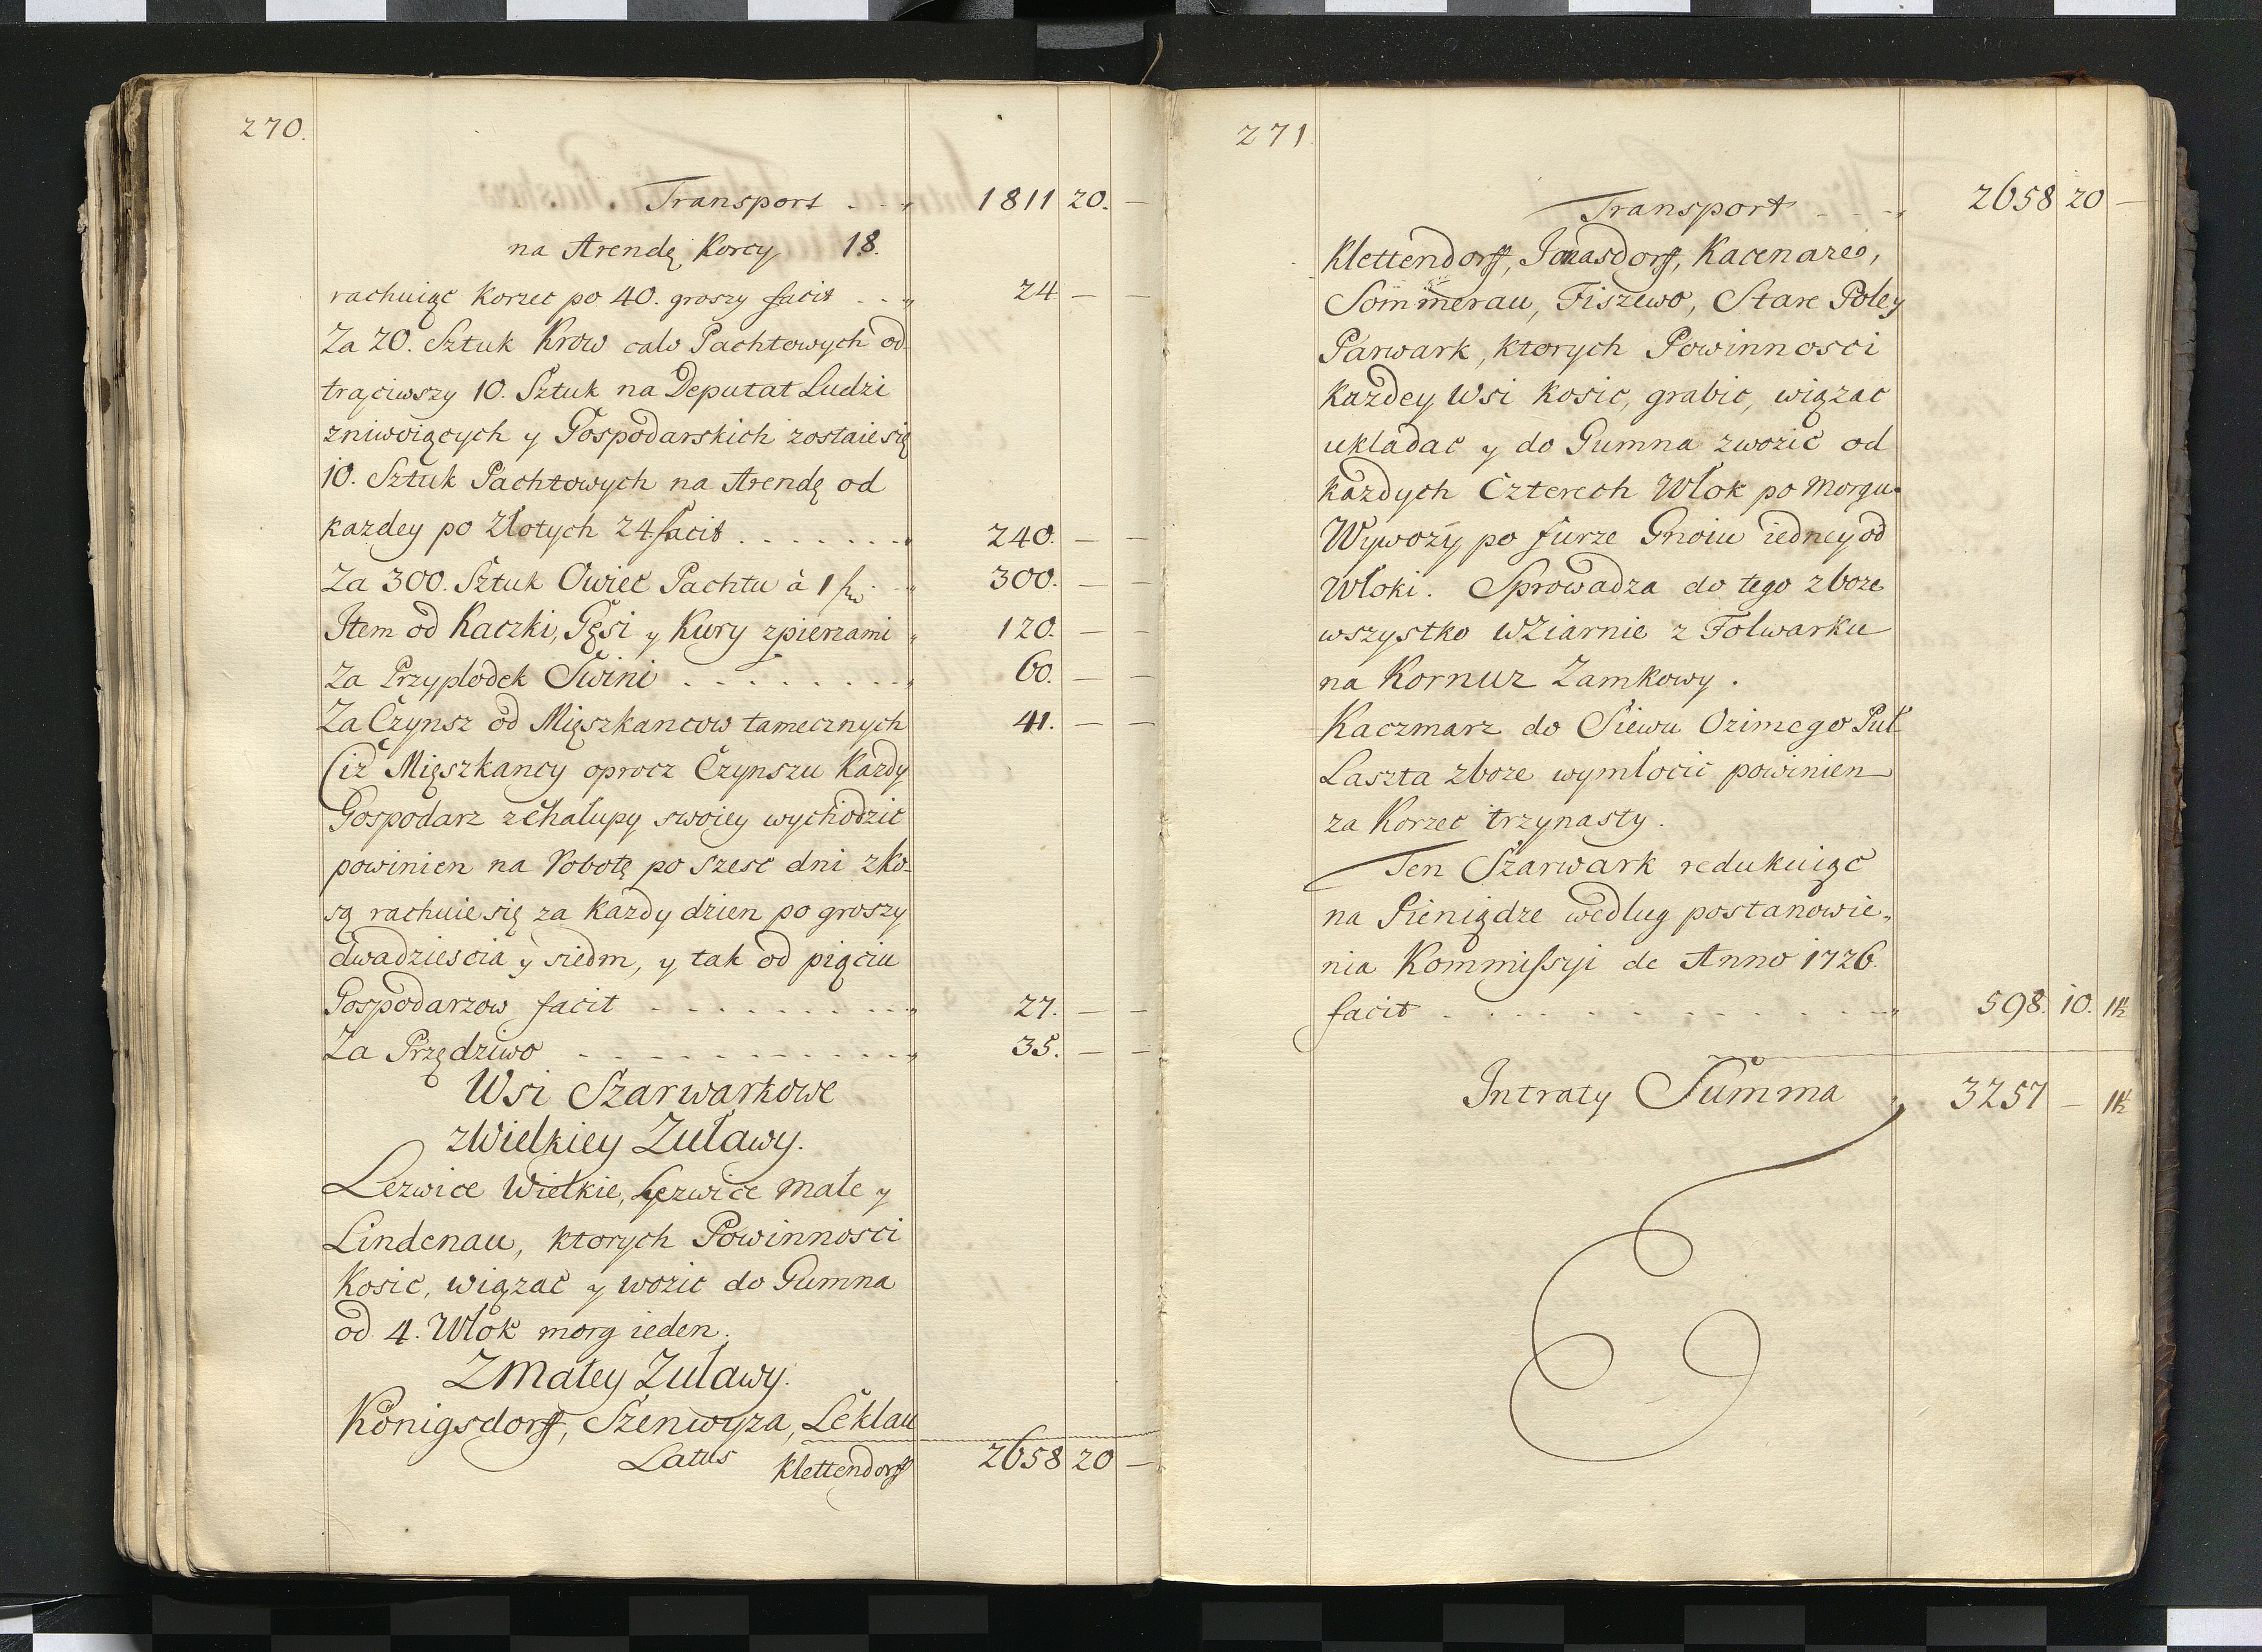 270.
Transport . . „ 1811 20. —
na Arendę Korcy 18.
rachuiąc Korzec po 40. groszy facit . . „ 24 — —
Za 20. Sztuk Krow calo Pachtowych od-
trąciwszy 10. Sztuk na Deputat Ludzi
zniwoiących y Gospodarskich zostaie się
10. Sztuk Pachtowych na Arendę od
kazdey po Złotych 24. facit . . . . . . . 240. — —
Za 300. Sztuk Owiec Pachtu à 1 „ 300. — —
Item od Kaczki, Gęsi y Kury zpierzami „ 120. — —
Za Przyplodek Swini . . . . . . . . „ 60. — —
Za Czynsz od Mięszkancow tamecznych 41. — —
(iż Mięszkancy oprocz Czynszu Kazdy
Gospodarz zChałupy swoiey wychodzic
powinien na Robotę po szesc dni zko-
są rachuie się za Kazdy dzien po groszy
dwadziescia y siedm, y tak od pięciu
Gospodarzow facit . . . . . . . . . „ 27. — —
Za Przędziwo . . . . . . . . . . . „ 35. — —
Wsi Szarwarkowe
zWielkiey Zuławy.
Lezwice Wielkie, Lezwice Małe y
Lindenau, ktorych Powinnosci
Kosic, wiązac y wozic do Gumna
od 4. Włok morg ieden.
ZMałey Zuławy.
Königsdorff, Szenwyza, Leklau
Latus Klettendorff 2658 20 —
271
Transport . . . „ 2658 20 —
Klettendorff, Jonasdorff, Kacenaze,
Sommerau, Fiszewo, Stare Pole y
Parwark, ktorych Powinnosci
Kazdey Wsi kosic, grabic, wiązac
układac y do Gumna zwozic od
kazdych Czterech Włok po Morgu.
Wywozy po furze Gnoiu iedney od
Włoki. Sprowadza do tego zboze
wszystko wZiarnie z Folwarku
na Kornuz Zamkowy.
Kaczmarz do Siewu Ozimego Puł
Laszta zboze wymłocic powinien
za Korzec trzynasty.
Ten Szarwark redukuiąc
na Pieniądze według postanowie„
nia Kommissyi de Anno 1726.
facit . . . . . . . . . . . . . „ 598. 10. 1½
Intraty Summa „ 3257 — 1½